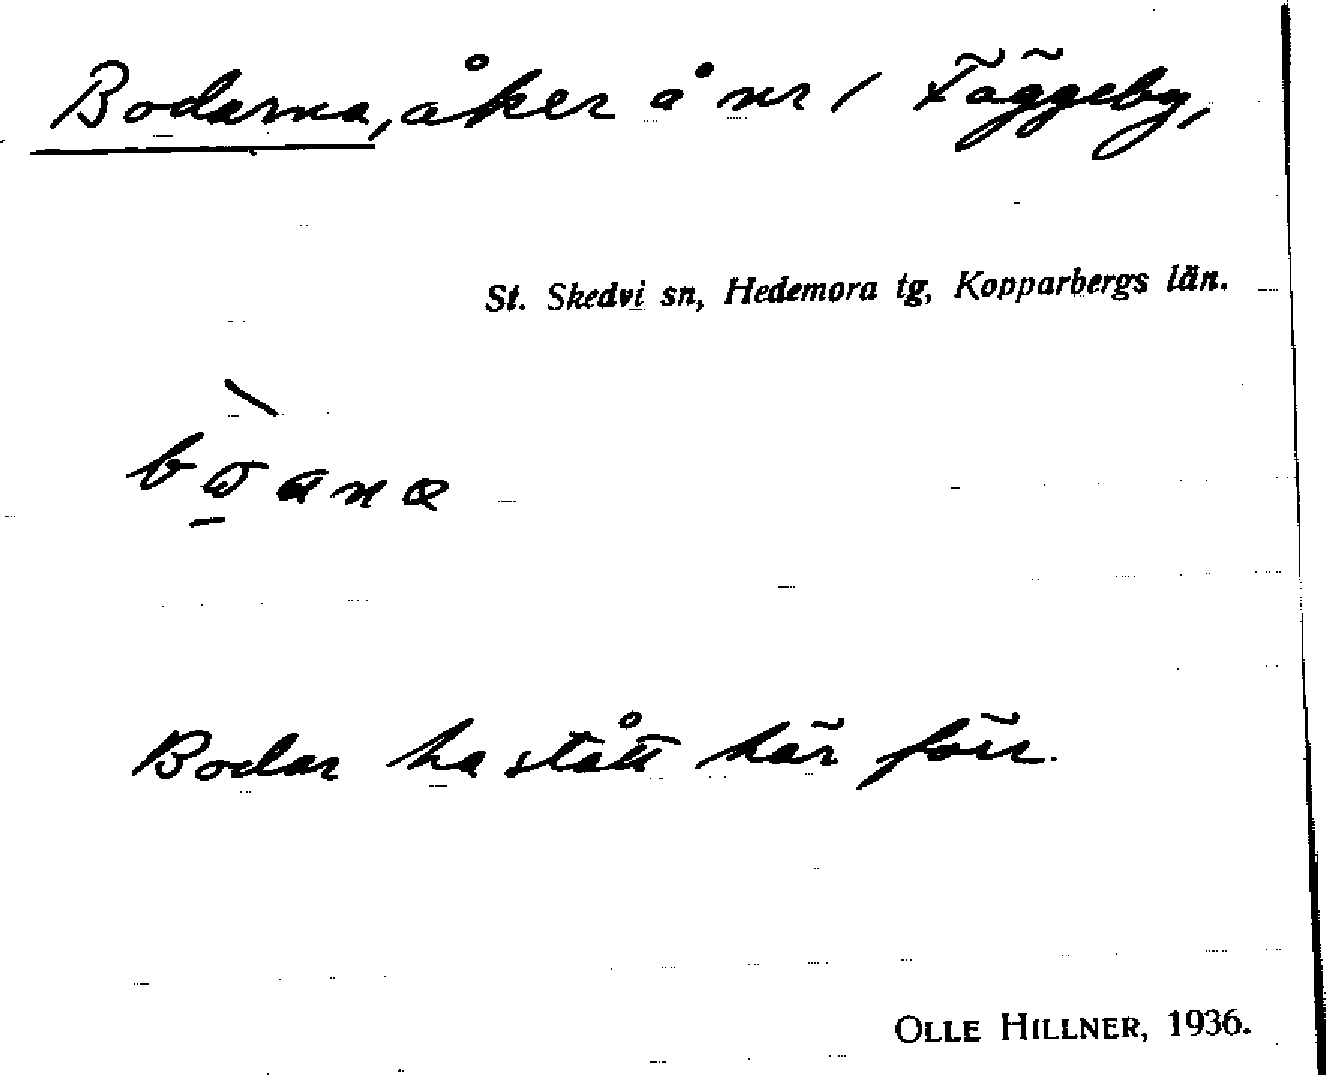 Bodarna, åker å nr 1 Fäggeby,
St. Skedvi sn, Hedemora tg, Kopparbergs län.
Bodar ha stått här förr.
OLLE HILLNER, 1936.